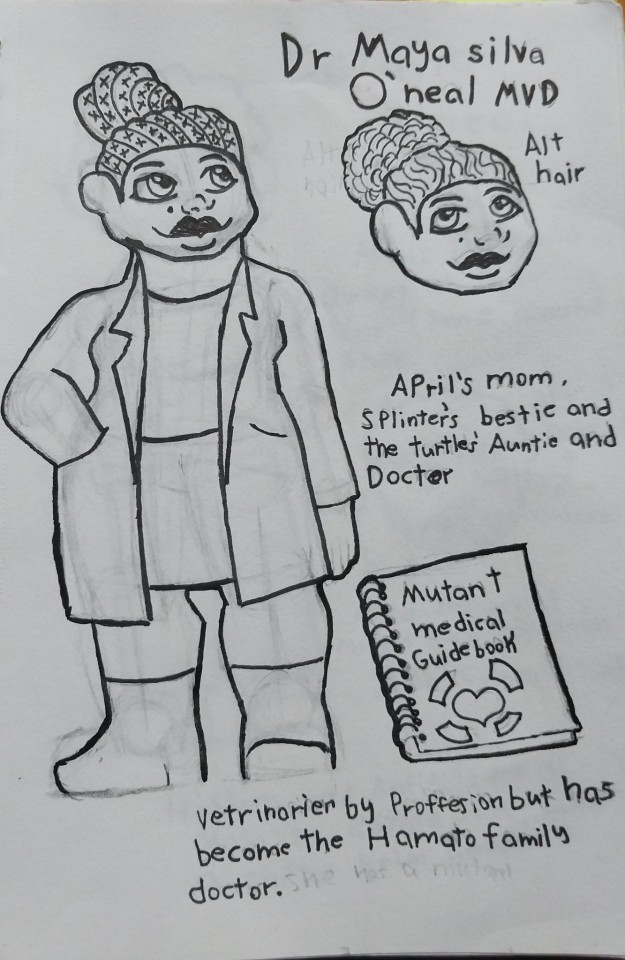 Dr Maya silva
O'neal MVD
Alt
hair
APril's mom,
Splinter's bestie and
the turtles' Auntie and
Doctor
Mutant
medical
Guidebook
vetrinarier by Proffesion but has
become the Hamato family
doctor. she not a mutant